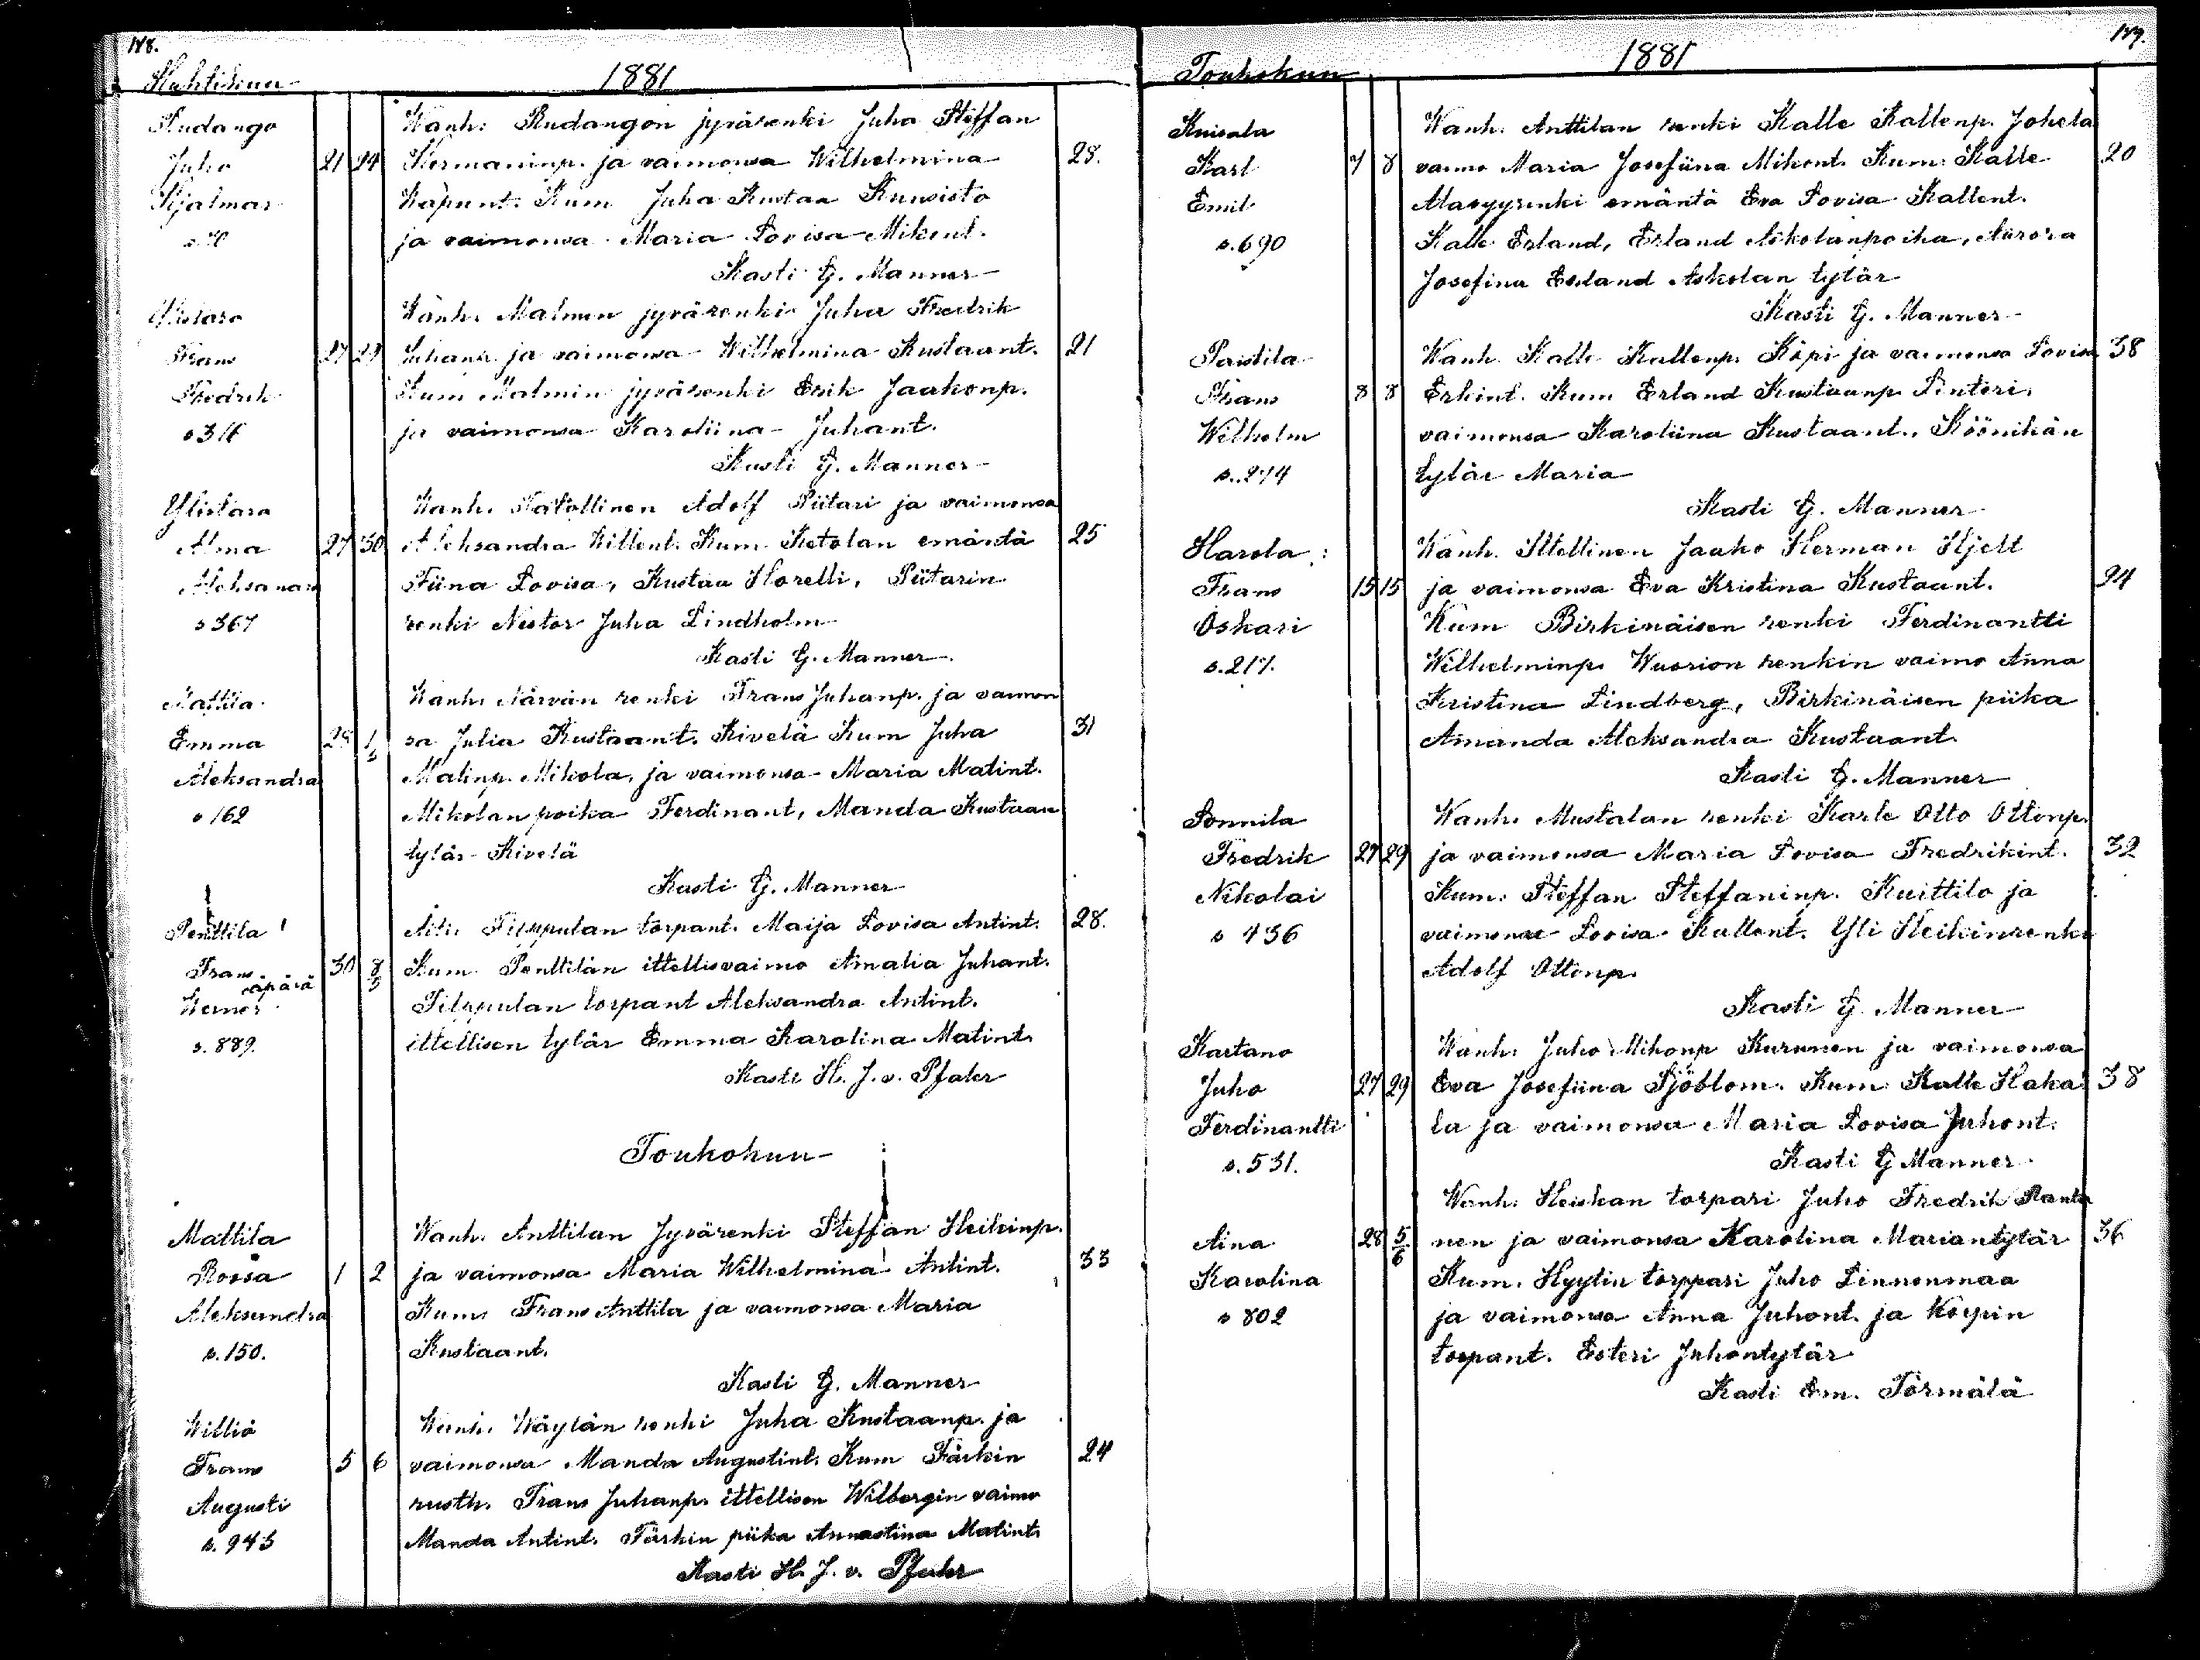 178.
Huhtikuu
1881
Rudanga
Wanh: Rudangon jyvärenki Juha Steffan
Juho 21 24 Hermaninp. ja vaimonsa Wilhelmina 28.
Hjalmar
Kum Juha Kustaa Knusisto
ja vaimonsa Maria Lovisa Mikont.
Kasti G. Manner
Wanh: Malmin jyvärenki Juha Fredrik
Frans 27 29 Juhanp. ja vaimonsa Wilhelmina Kustaant. 21
Fredrik Kum Malmin jyvärenki Erik Jaakonp.
ja vaimonsa Karoliina Juhant.
Kasti G. Manner
Ylistaro
Wanh. Itätöllinen Adolf Piitari ja vaimonsa
Alma 27 30 Aleksandra Willent. Kum Ketolan emäntä 25
Aleksandra Fiina Lovisa, Kustaa Horelli, Piitarin
s 367 renki Nestor Juha Lindholm
Kasti G. Manner
Mattila
Wanh. Närvän renki Frans Juhanp. ja vaimon
Emma 28 1/5 sa Julia Kustaant. Kivelä Kum Juha 31
Aleksandra Matinp. Mikola, ja vaimonsa Maria Matint.
s 162 Mikolan poika Ferdinant, Manda Kustaan
tytär Kivelä
Kasti G. Manner
Penttila
Äiti Filppulan torpant. Maija Lovisa Antint. 28.
Frans 30 8/5 Kum Penttilän ittellisvaimo Amalia Juhant.
äpärä
Werner Filppulan torpant Aleksandra Antint.
s. 889. ittellisen tytär Emma Karolina Matint.
Kasti H. J. v. Pfaler
Toukokuu
Mattila
Wanh. Anttilan Jyvärenki Steffan Heikinp.
Roosa 1 2 ja vaimonsa Maria Wilhelmina Antint. 33
Aleksandra Kum: Frans Anttila ja vaimonsa Maria
s. 150. Kustaant.
Kasti G. Manner
Williö
Wanh. Wäylän renki Juha Kustaanp. ja
Frans 5 6 vaimonsa Manda Augustint. Kum Färkin 24
Augusti rusth. Frans Juhanp. ittellisen Wilbergin vaimo
s. 943 Manda Antint. Färkin piika Annastina Matint.
Kasti H. J. v. Pfaler
179.
Toukokuu
1881
Knisala
Wanh. Anttilan renki Kalle Kallenp. Johela
Karl 7 8 vaimo Maria Josefiina Mikont. Kum: Kalle 20
Emil emäntä Eva Lovisa Kallent.
s. 690 Kalle Erland, Erland Askolanpoika, Aurora
Josefina Erland Askolan tytär
Kasti G. Manner
Paistila
Wanh. Kalle Kallenp. Köpi ja vaimonsa Lovisa 38
Frans 8 8 Erkint. Kum Erland Kustaanp. Linteri,
Wilhelm vaimonsa Karoliina Kustaant., Köönikän
s. 274 tytär Maria
Kasti G. Manner
Harola:
Wanh. Ittellinen Jaako Herman Hjelt
Frans 15 15 ja vaimonsa Eva Kristina Kustaant. 24
Oskari Kum Birkinäisen renki Ferdinantti
s. 217. Wilhelminp. Wuorion renkin vaimo Anna
Kristina Lindberg, Birkinäisen piika
Amanda Aleksandra Kustaant.
Kasti G. Manner
Sonnila
Wanh. Mustalan renki Karle Otto Ottonp.
Fredrik 27 29 ja vaimonsa Maria Lovisa Fredrikint. 32
Nikolai Kum: Steffan Steffaninp. Kuittilo ja
s 436 vaimonsa Lovisa Kallent. Yli Heikinrenki
Adolf Ottonp.
Kasti G. Manner
Kartano
Wanh. Juho Mikonp Kurunen ja vaimonsa
Juho 27 29 Eva Josefiina Sjöblom. Kum: Kalle Haka 38
Ferdinantti la ja vaimonsa Maria Lovisa Juhont.
s. 531. Kasti G Manner
Wanh. Heiskan torpari Juho Fredrik Ranta
Aina 28 5/6 nen ja vaimonsa Karolina Mariantytär 36
Karolina Kum. Hyytin torppari Juho Linnonmaa
s 802 ja vaimonsa Anna Juhont. ja Körpin
torpant. Esteri Juhontytär
Kasti Em. Törmälä